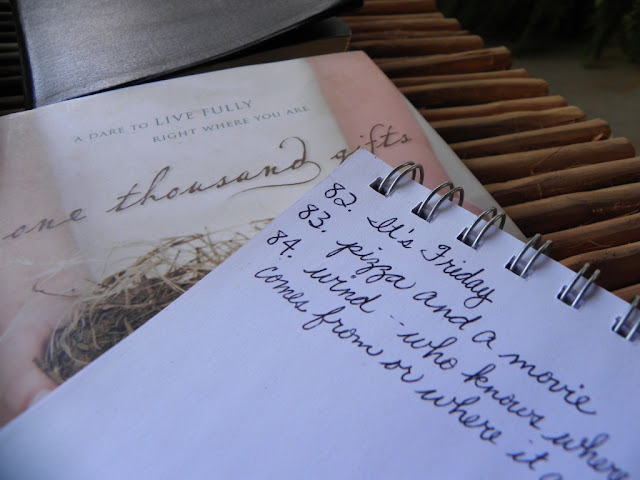 A DARE TO LIVE FULLY
RIGHT WHERE YOU ARE
one thousand gifts
82. It's Friday
83. pizza and a movie
84. wind -- who knows where
comes from or where it